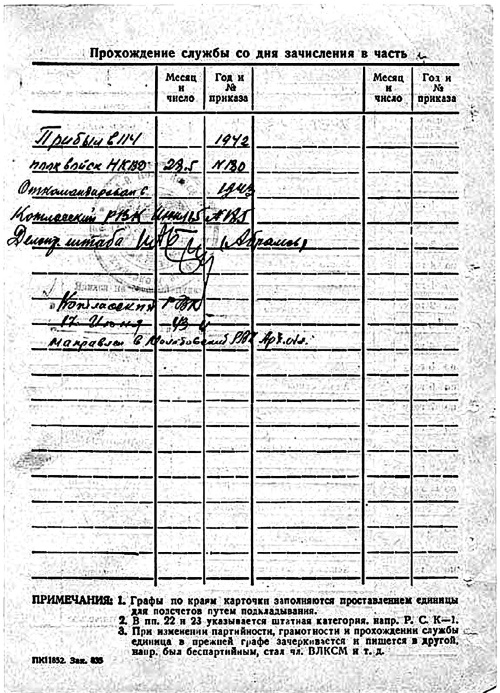 Прохождение службы со дня зачисления в часть
Месяц и число
Год и № приказа
Месяц и число
Год и № приказа
Прибыл в 114 1942
полк войск НКВД 28.5 № 130
Откомандирован в 1943
Котласский РВК № 125
штаба (Абрамов)
Котласским РВК
17. Июня 43 г
направлен в РВК Арх. обл.
ПРИМЕЧАНИЯ: 1. Графы по краям карточки заполняются проставлением единицы
для подсчетов путем подкладывания.
2. В пп. 22 и 23 указывается штатная категория, напр. Р. С. К—1.
3. При изменении партийности, грамотности и прохождении службы
единица в прежней графе зачеркивается и пишется в другой,
напр. был беспартийным, стал чл. ВЛКСМ и т. д.
ПХ11652. Зак. 835